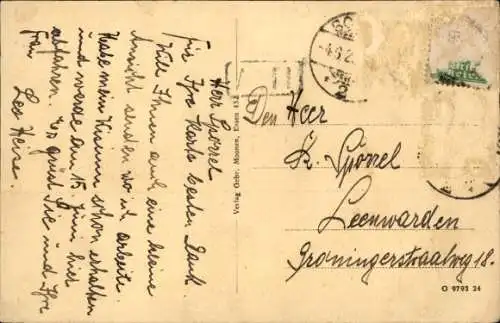 Herr Spörrel
für Ihre Karte besten Dank.
Will Ihnen auch eine kleine
Ansicht senden wo ich arbeite.
Habe mein Visum schon erhalten
und werde am 15 Juni hier
abfahren. Es grüßt Sie und Ihre
Frau
Leo Heise.
Verlag Gebr. Monsten, Essen
Den Heer
K. Spörrel
Leenwarden
Groningerstraatweg 18.
O 9793 24